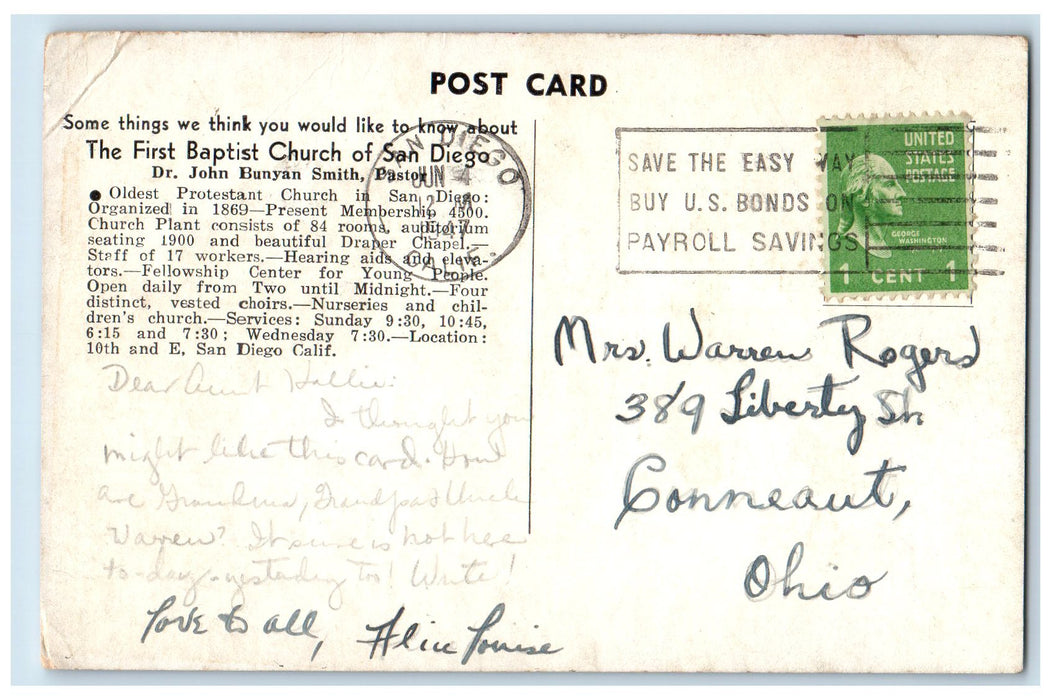 POST CARD
Some things we think you would like to know about
The First Baptist Church of San Diego
Dr. John Bunyan Smith, Pastor
● Oldest Protestant Church in San Diego:
Organized in 1869—Present Membership 4500.
Church Plant consists of 84 rooms, auditorium
seating 1900 and beautiful Draper Chapel.—
Staff of 17 workers.—Hearing aids and eleva-
tors.—Fellowship Center for Young People.
Open daily from Two until Midnight.—Four
distinct, vested choirs.—Nurseries and chil-
dren's church.—Services: Sunday 9:30, 10:45,
6:15 and 7:30; Wednesday 7:30.—Location:
10th and E, San Diego Calif.
Dear Aunt Hallie:
I thought you
might like this card. How
are Grandma, Grandpa & Uncle
Warren? It sure is hot here
to-day - yesterday too! Write!
Love to all, Alice Louise
SAN DIEGO
JUN 4
SAVE THE EASY WAY
BUY U.S. BONDS ON
PAYROLL SAVINGS
UNITED
STATES
POSTAGE
GEORGE
WASHINGTON
1 CENT 1
Mrs. Warren Rogers
389 Liberty St.
Conneaut,
Ohio